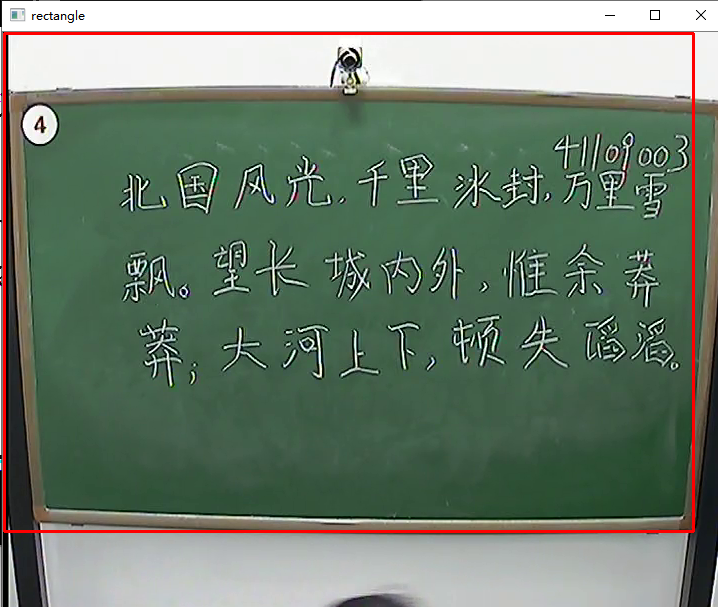 rectangle
4
41109003
北国风光,千里冰封,万里雪
飘。望长城内外,惟余莽
莽;大河上下,顿失滔滔。